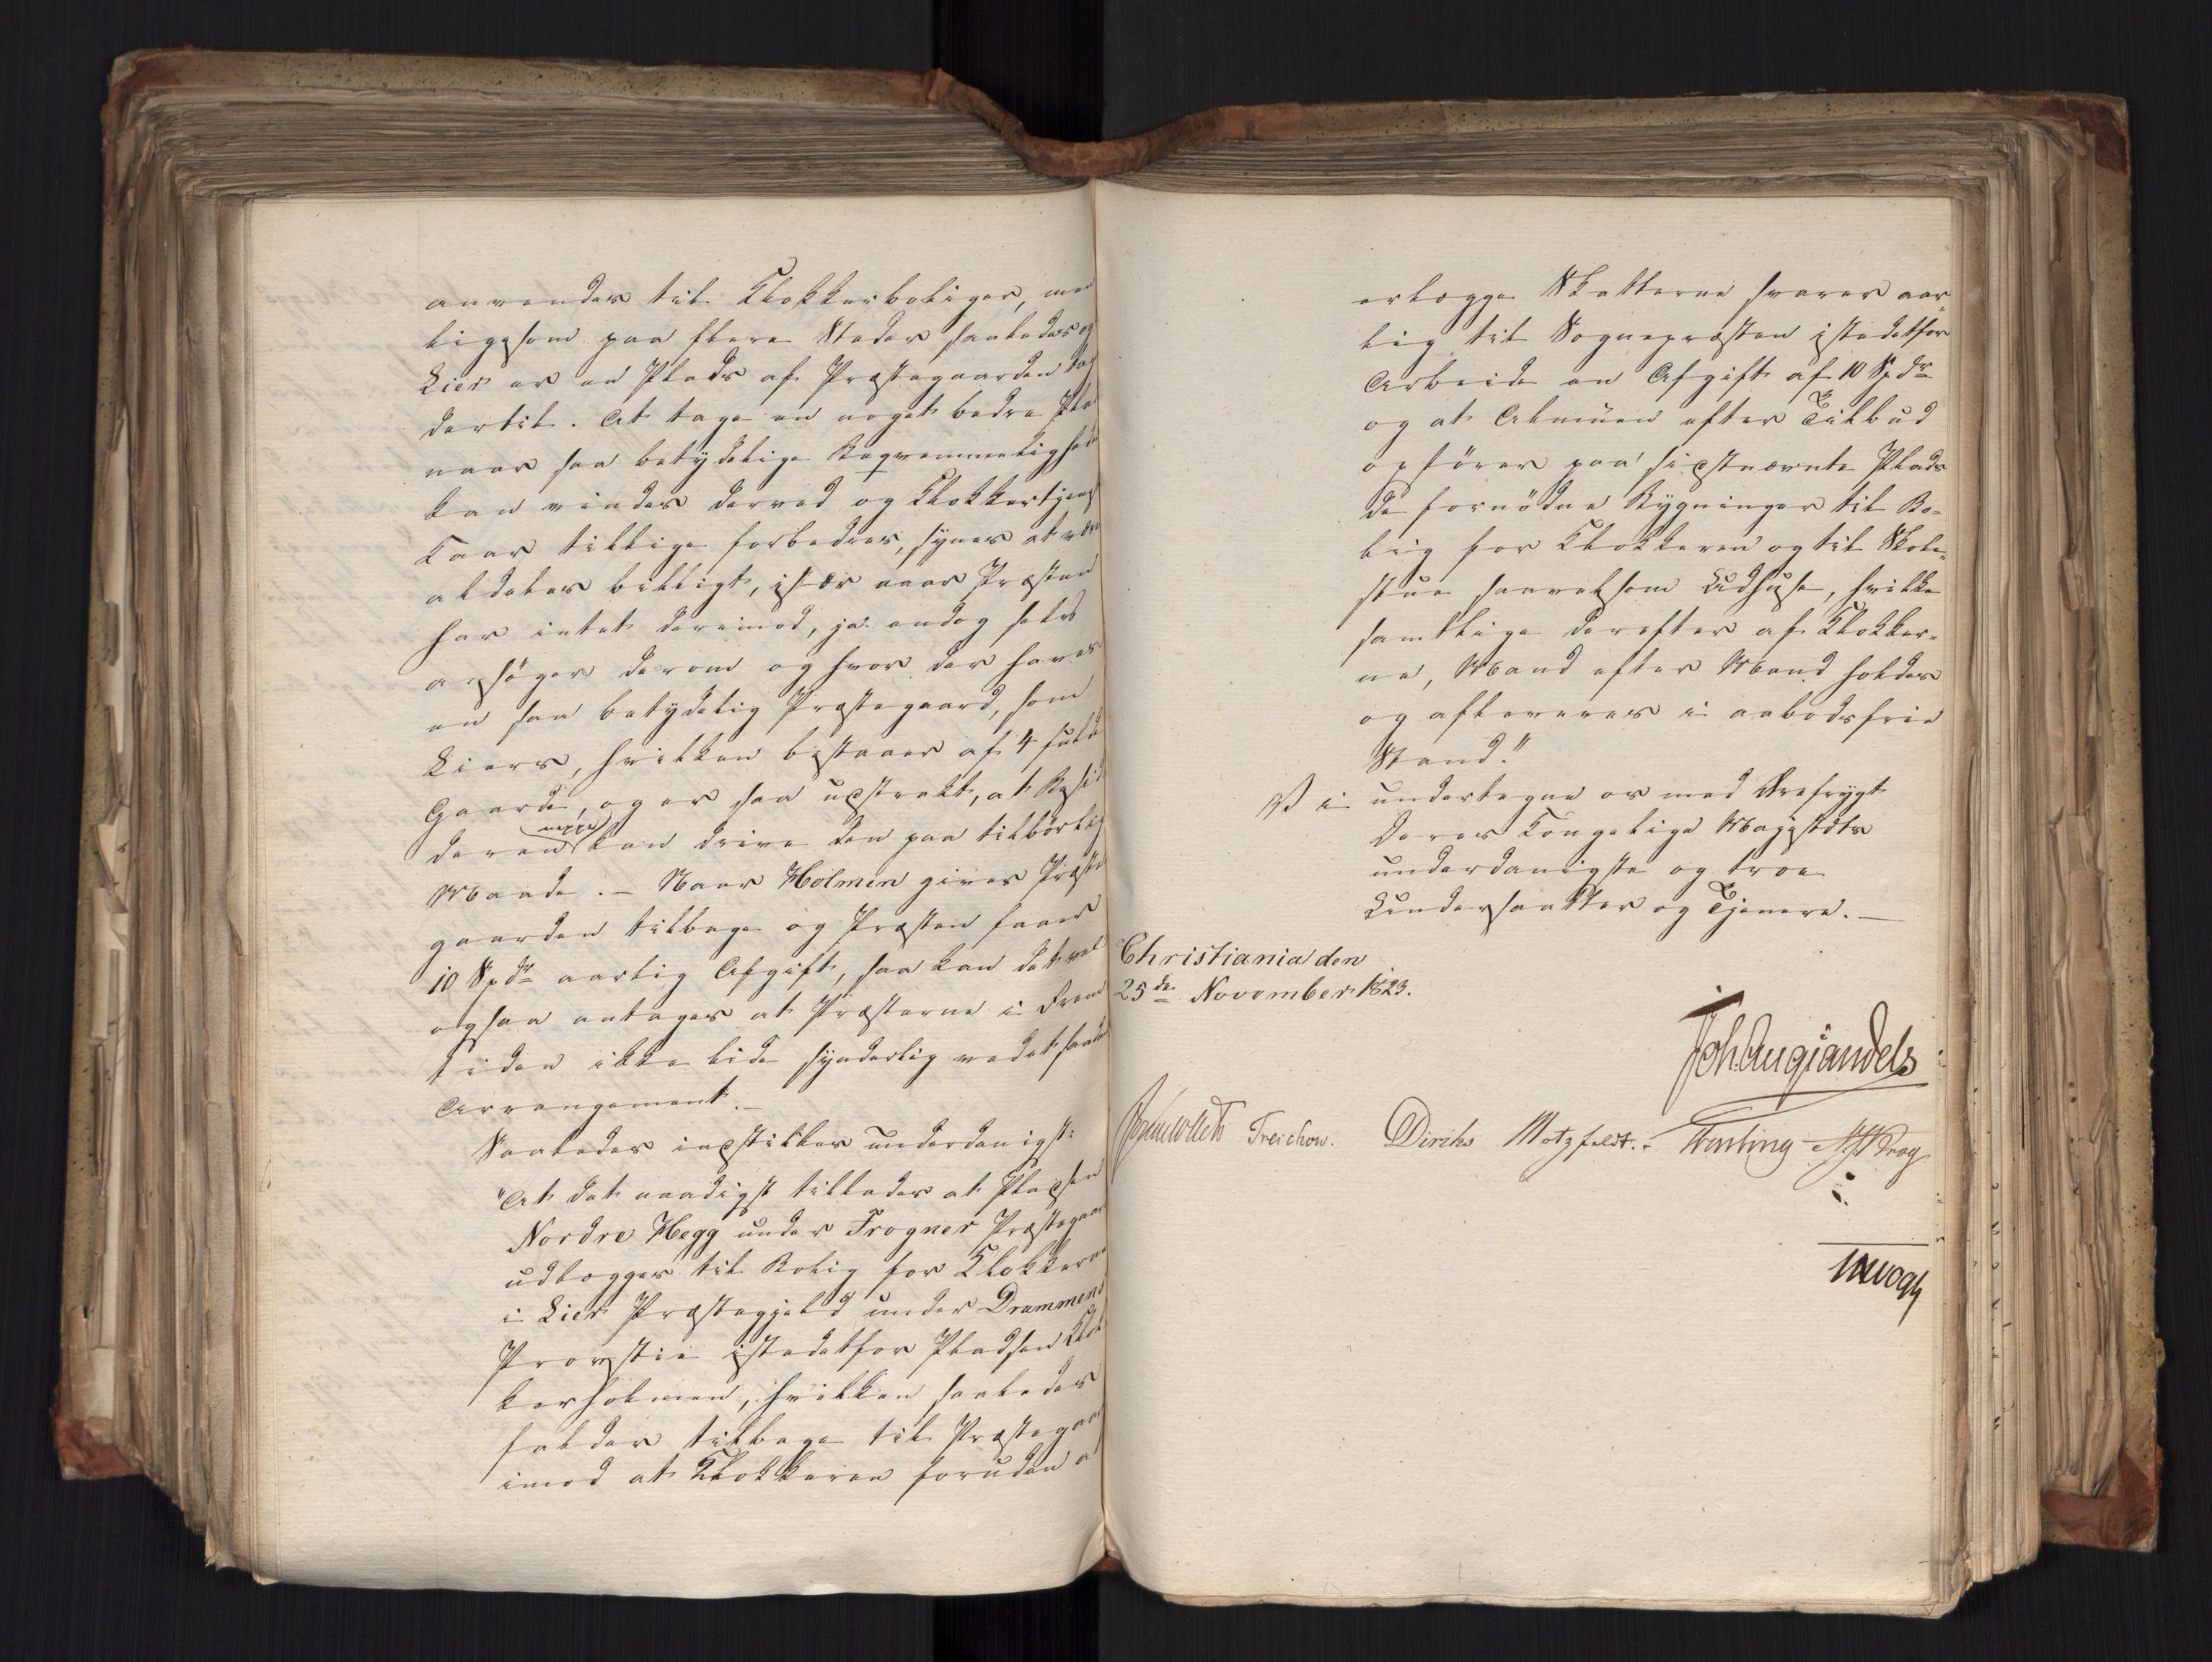 anvendes til Klokkerboliger, men
ligesom paa flere Steder saaledes og
Lier er en Plads af Præstegaarden
dertil. At tage en noget bedre Pla
naar saa betydelige Beqvemmelighede
kan vindes derved og Klokkertjenest
Kaar tillige forbedres, synes at være
aldeles billigt, især naar Præsten
har intet derimod, ja endog selv
ansøger derom og hvor der haves
en saa betydelig Præstegaard, som
Liers, hvilken bestaaer af 4 fulde
Gaarde, og er saa udstrakt, at Besid
deren neppe kan drive den paa tilbørlig
Maade. – Naar Holmen gives Præste
gaarden tilbage og Præsten faaer
10 Spdr aarlig Afgift, saa kan det vel
ogsaa antages at Præsterne i Frem
tiden ikke lide synderlig ved et saadant
Arrangement. –
Saaledes indstilles underdanigst:
"At det naadigst tillades at Pladsen
Nordre Hegg under Frogner Præstegaar
udlægges til Bolig for Klokkeren
i Lier Præstegjeld under Drammens
Provstie istedetfor Pladsen Klok
kerholmen, hvilken saaledes
falder tilbage til Præstegaar
imod at Klokkeren foruden a
erlægge Skatterne svarer aar
lig til Sognepræsten istedetfor
Arbeide en Afgift af 10 Spdr
og at Almuen efter Tilbud
opfører paa sidstnævnte Plads
de fornødne Bygninger til Bo-
lig for Klokkeren og til Skole-
stue saavelsom Udhuse, hvilke
samtlige derefter af Klokker-
ne, Mand efter Mand holdes
og afleveres i aabodsfrie
Stand."
Vi undertegne os med Ærefrygt
Deres Kongelige Majestæts
underdanigste og troe
Undersaatter og Tjenere. –
Christiania den
25de November 1823.
Joh Aug Sandels
JCollett Treschow. Diriks Motzfeldt. Fasting Krog
Vogt